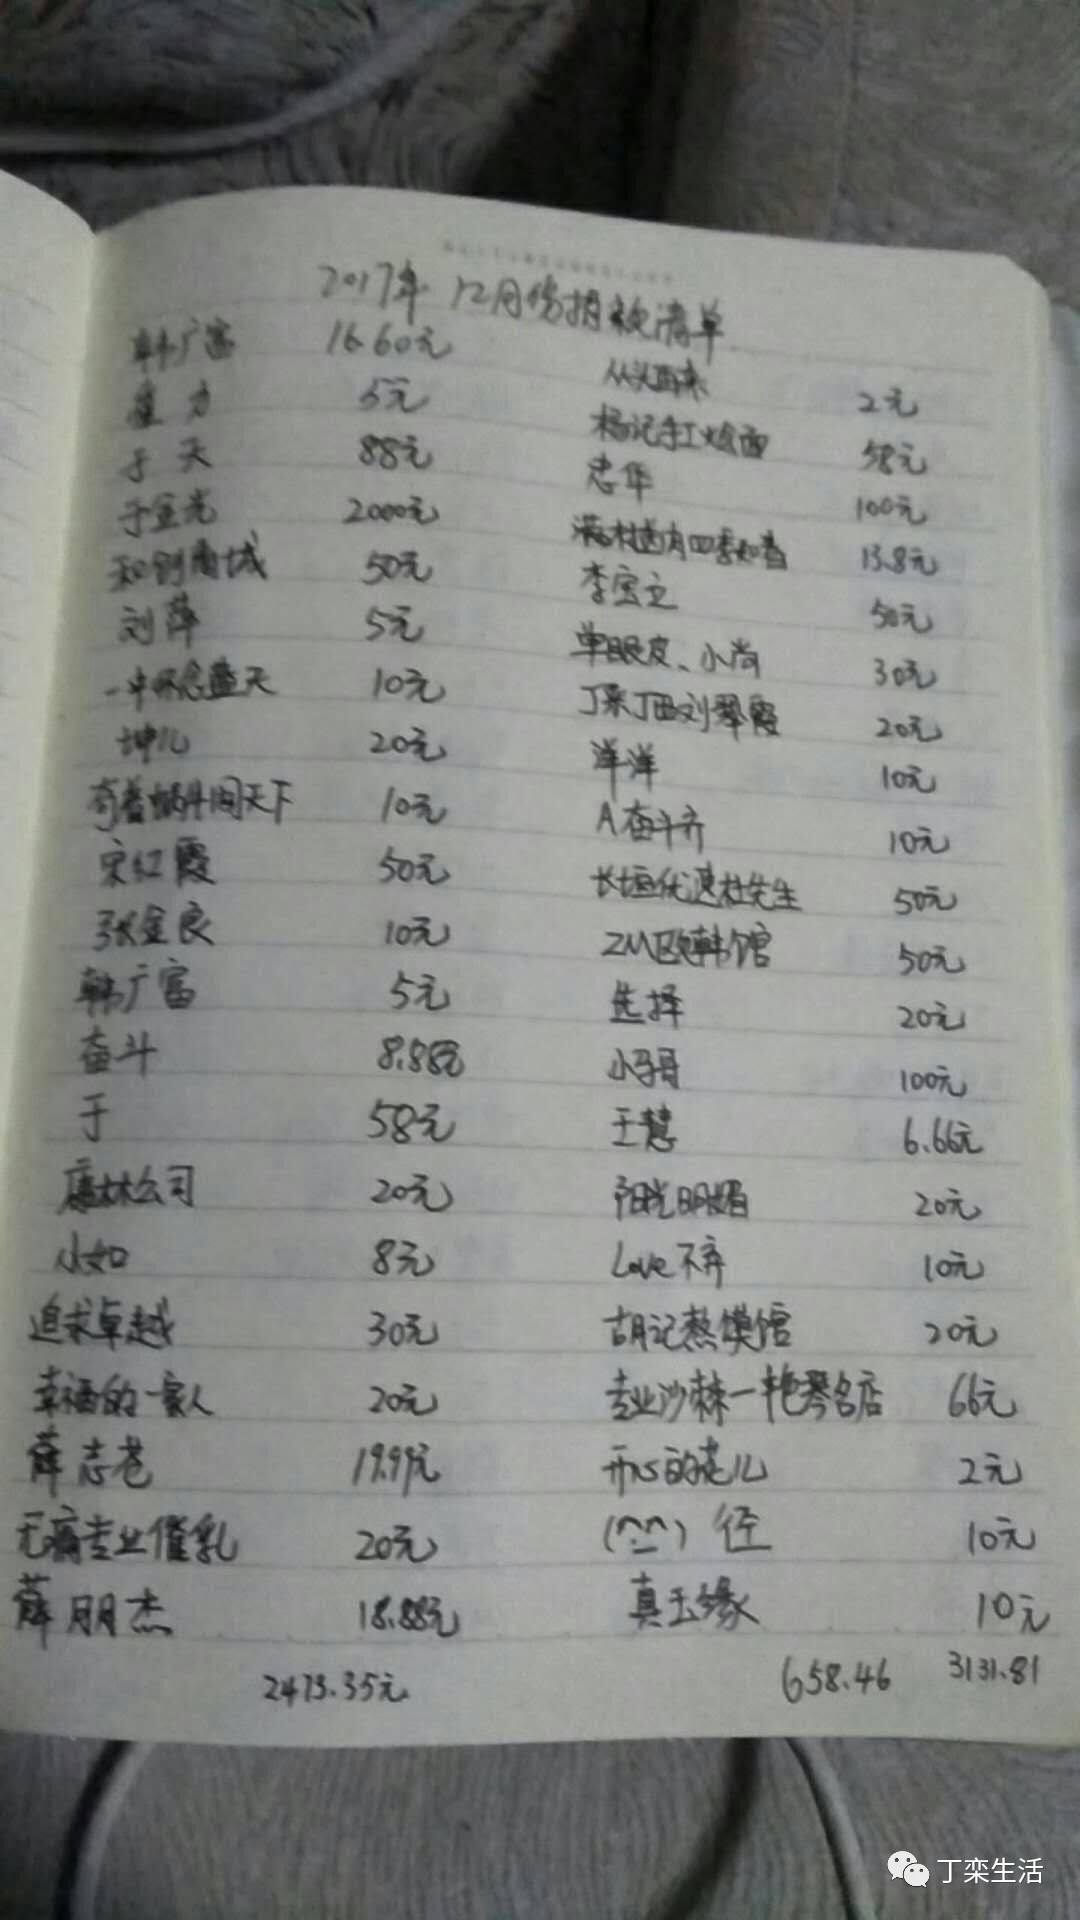 2017年12月份捐款清单
韩广富 16.60元
崔力 5元
于天 88元
于金光 2000元
商城 50元
刘萍 5元
蓝天 10元
坤儿 20元
蜗牛闯天下 10元
宋红霞 50元
张金良 10元
韩广富 5元
奋斗 8.88元
于 58元
康林公司 20元
小如 8元
追求卓越 30元
幸福的一家人 20元
薛志 19.99元
无痛专业催乳 20元
薛朋杰 18.88元
2473.35元
从头再来 2元
杨记手工烩面 58元
忠华 100元
四季如春 13.8元
李宝立 50元
单眼皮、小尚 30元
丁栾丁西刘翠霞 20元
洋洋 10元
A奋斗齐 10元
长垣优选杜先生 50元
ZM欧韩馆 50元
选择 20元
小马哥 100元
王慧 6.66元
阳光明媚 20元
Love不弃 10元
胡记热馍馆 20元
专业沙棘一艳琴名店 66元
开心的花儿 2元
(^_^) 径 10元
真玉缘 10元
658.46 3131.81
丁栾生活